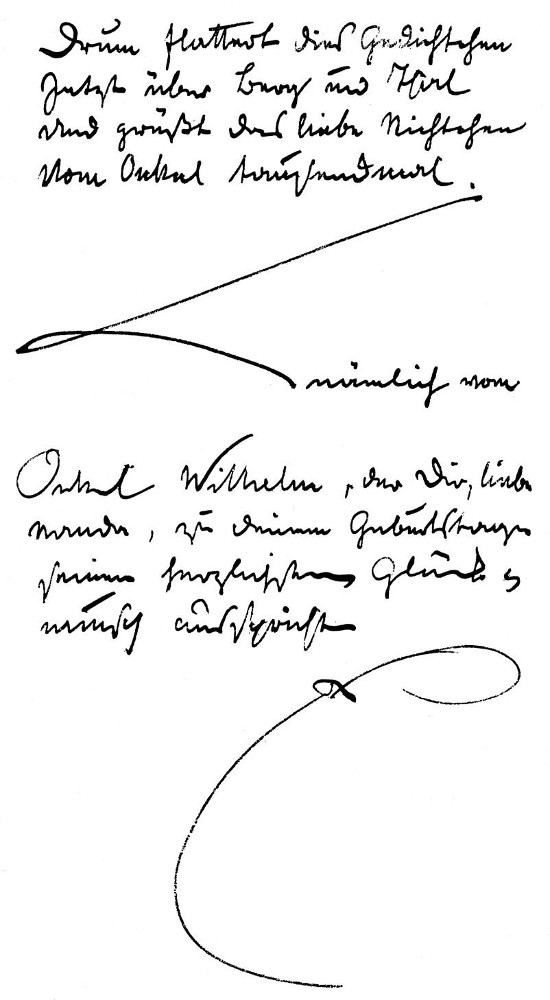 Drum flattert dies Gedichtchen
Jetzt über Berg und Thal
Und grüßt das liebe Nichtchen
Vom Onkel tausendmal.
nämlich vom
Onkel Wilhelm, der Dir, liebe
Nanda, zu deinem Geburtstage
seinen herzlichsten Glück-
wunsch ausspricht